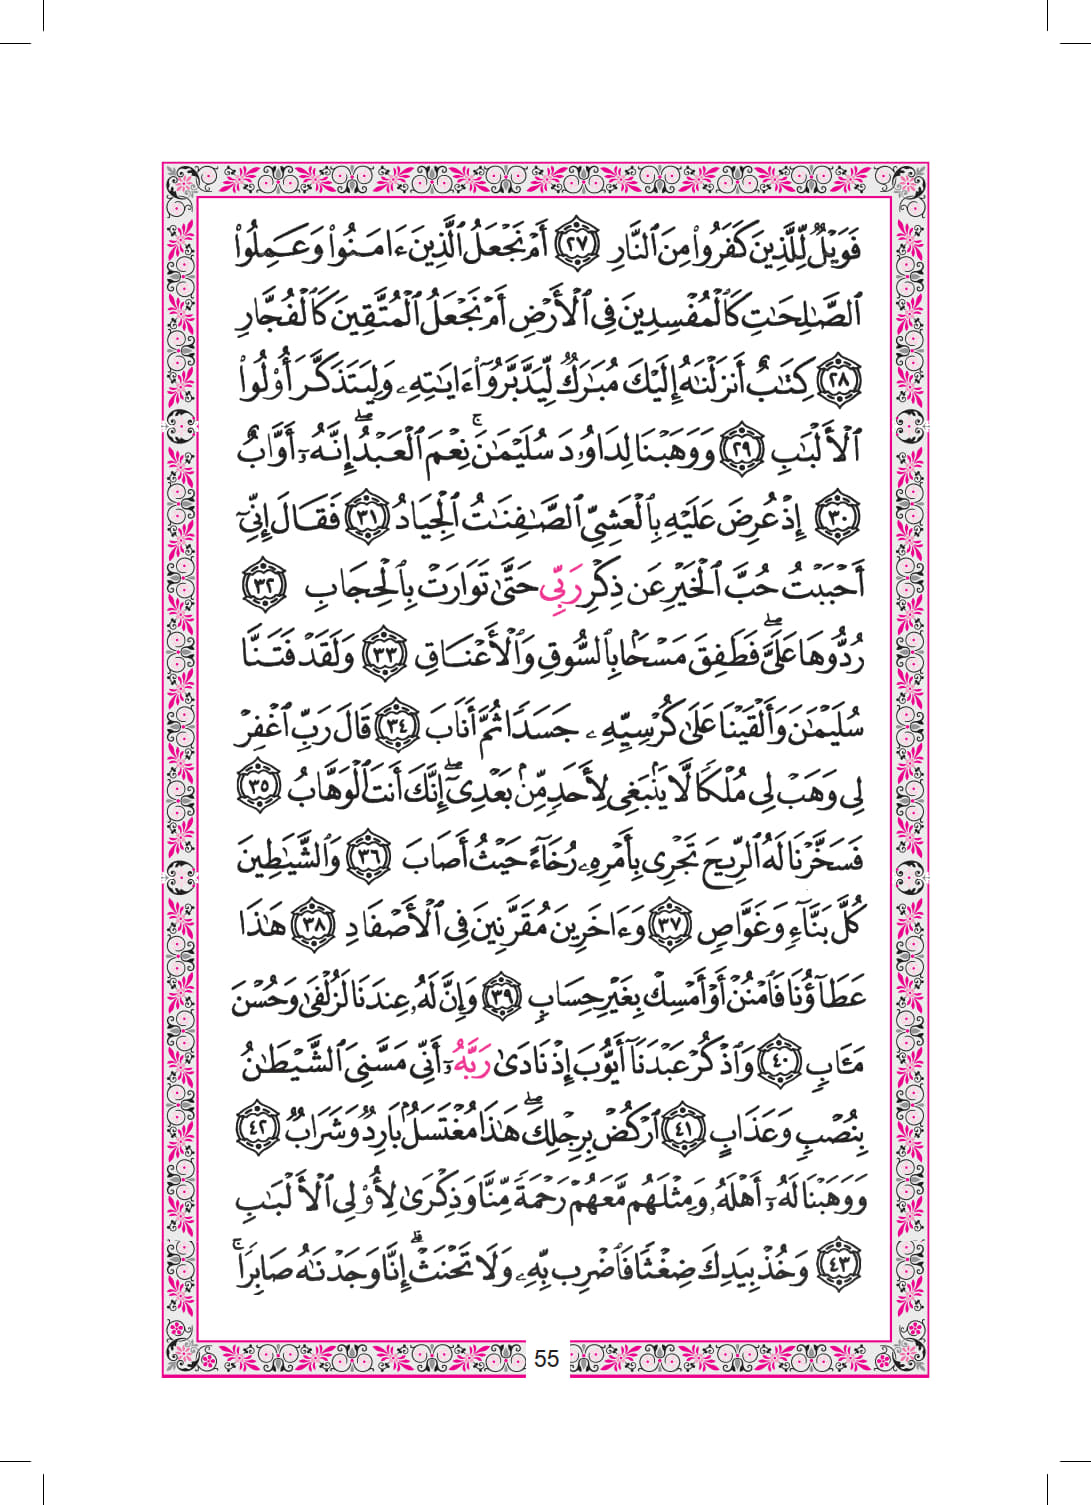 فَوَيْلٌ لِّلَّذِينَ كَفَرُوا۟ مِنَ ٱلنَّارِ ﴿٢٧﴾ أَمْ نَجْعَلُ ٱلَّذِينَ ءَامَنُوا۟ وَعَمِلُوا۟
ٱلصَّـٰلِحَـٰتِ كَٱلْمُفْسِدِينَ فِى ٱلْأَرْضِ أَمْ نَجْعَلُ ٱلْمُتَّقِينَ كَٱلْفُجَّارِ
﴿٢٨﴾ كِتَـٰبٌ أَنزَلْنَـٰهُ إِلَيْكَ مُبَـٰرَكٌ لِّيَدَّبَّرُوٓا۟ ءَايَـٰتِهِۦ وَلِيَتَذَكَّرَ أُو۟لُوا۟
ٱلْأَلْبَـٰبِ ﴿٢٩﴾ وَوَهَبْنَا لِدَاوُۥدَ سُلَيْمَـٰنَ ۚ نِعْمَ ٱلْعَبْدُ ۖ إِنَّهُۥٓ أَوَّابٌ
﴿٣٠﴾ إِذْ عُرِضَ عَلَيْهِ بِٱلْعَشِىِّ ٱلصَّـٰفِنَـٰتُ ٱلْجِيَادُ ﴿٣١﴾ فَقَالَ إِنِّىٓ
أَحْبَبْتُ حُبَّ ٱلْخَيْرِ عَن ذِكْرِ رَبِّى حَتَّىٰ تَوَارَتْ بِٱلْحِجَابِ ﴿٣٢﴾
رُدُّوهَا عَلَىَّ ۖ فَطَفِقَ مَسْحًۢا بِٱلسُّوقِ وَٱلْأَعْنَاقِ ﴿٣٣﴾ وَلَقَدْ فَتَنَّا
سُلَيْمَـٰنَ وَأَلْقَيْنَا عَلَىٰ كُرْسِيِّهِۦ جَسَدًا ثُمَّ أَنَابَ ﴿٣٤﴾ قَالَ رَبِّ ٱغْفِرْ
لِى وَهَبْ لِى مُلْكًا لَّا يَنۢبَغِى لِأَحَدٍ مِّنۢ بَعْدِىٓ ۖ إِنَّكَ أَنتَ ٱلْوَهَّابُ ﴿٣٥﴾
فَسَخَّرْنَا لَهُ ٱلرِّيحَ تَجْرِى بِأَمْرِهِۦ رُخَآءً حَيْثُ أَصَابَ ﴿٣٦﴾ وَٱلشَّيَـٰطِينَ
كُلَّ بَنَّآءٍ وَغَوَّاصٍ ﴿٣٧﴾ وَءَاخَرِينَ مُقَرَّنِينَ فِى ٱلْأَصْفَادِ ﴿٣٨﴾ هَـٰذَا
عَطَآؤُنَا فَٱمْنُنْ أَوْ أَمْسِكْ بِغَيْرِ حِسَابٍ ﴿٣٩﴾ وَإِنَّ لَهُۥ عِندَنَا لَزُلْفَىٰ وَحُسْنَ
مَـَٔابٍ ﴿٤٠﴾ وَٱذْكُرْ عَبْدَنَآ أَيُّوبَ إِذْ نَادَىٰ رَبَّهُۥٓ أَنِّى مَسَّنِىَ ٱلشَّيْطَـٰنُ
بِنُصْبٍ وَعَذَابٍ ﴿٤١﴾ ٱرْكُضْ بِرِجْلِكَ ۖ هَـٰذَا مُغْتَسَلٌۢ بَارِدٌ وَشَرَابٌ ﴿٤٢﴾
وَوَهَبْنَا لَهُۥٓ أَهْلَهُۥ وَمِثْلَهُم مَّعَهُمْ رَحْمَةً مِّنَّا وَذِكْرَىٰ لِأُو۟لِى ٱلْأَلْبَـٰبِ
﴿٤٣﴾ وَخُذْ بِيَدِكَ ضِغْثًا فَٱضْرِب بِّهِۦ وَلَا تَحْنَثْ ۗ إِنَّا وَجَدْنَـٰهُ صَابِرًا ۚ
55